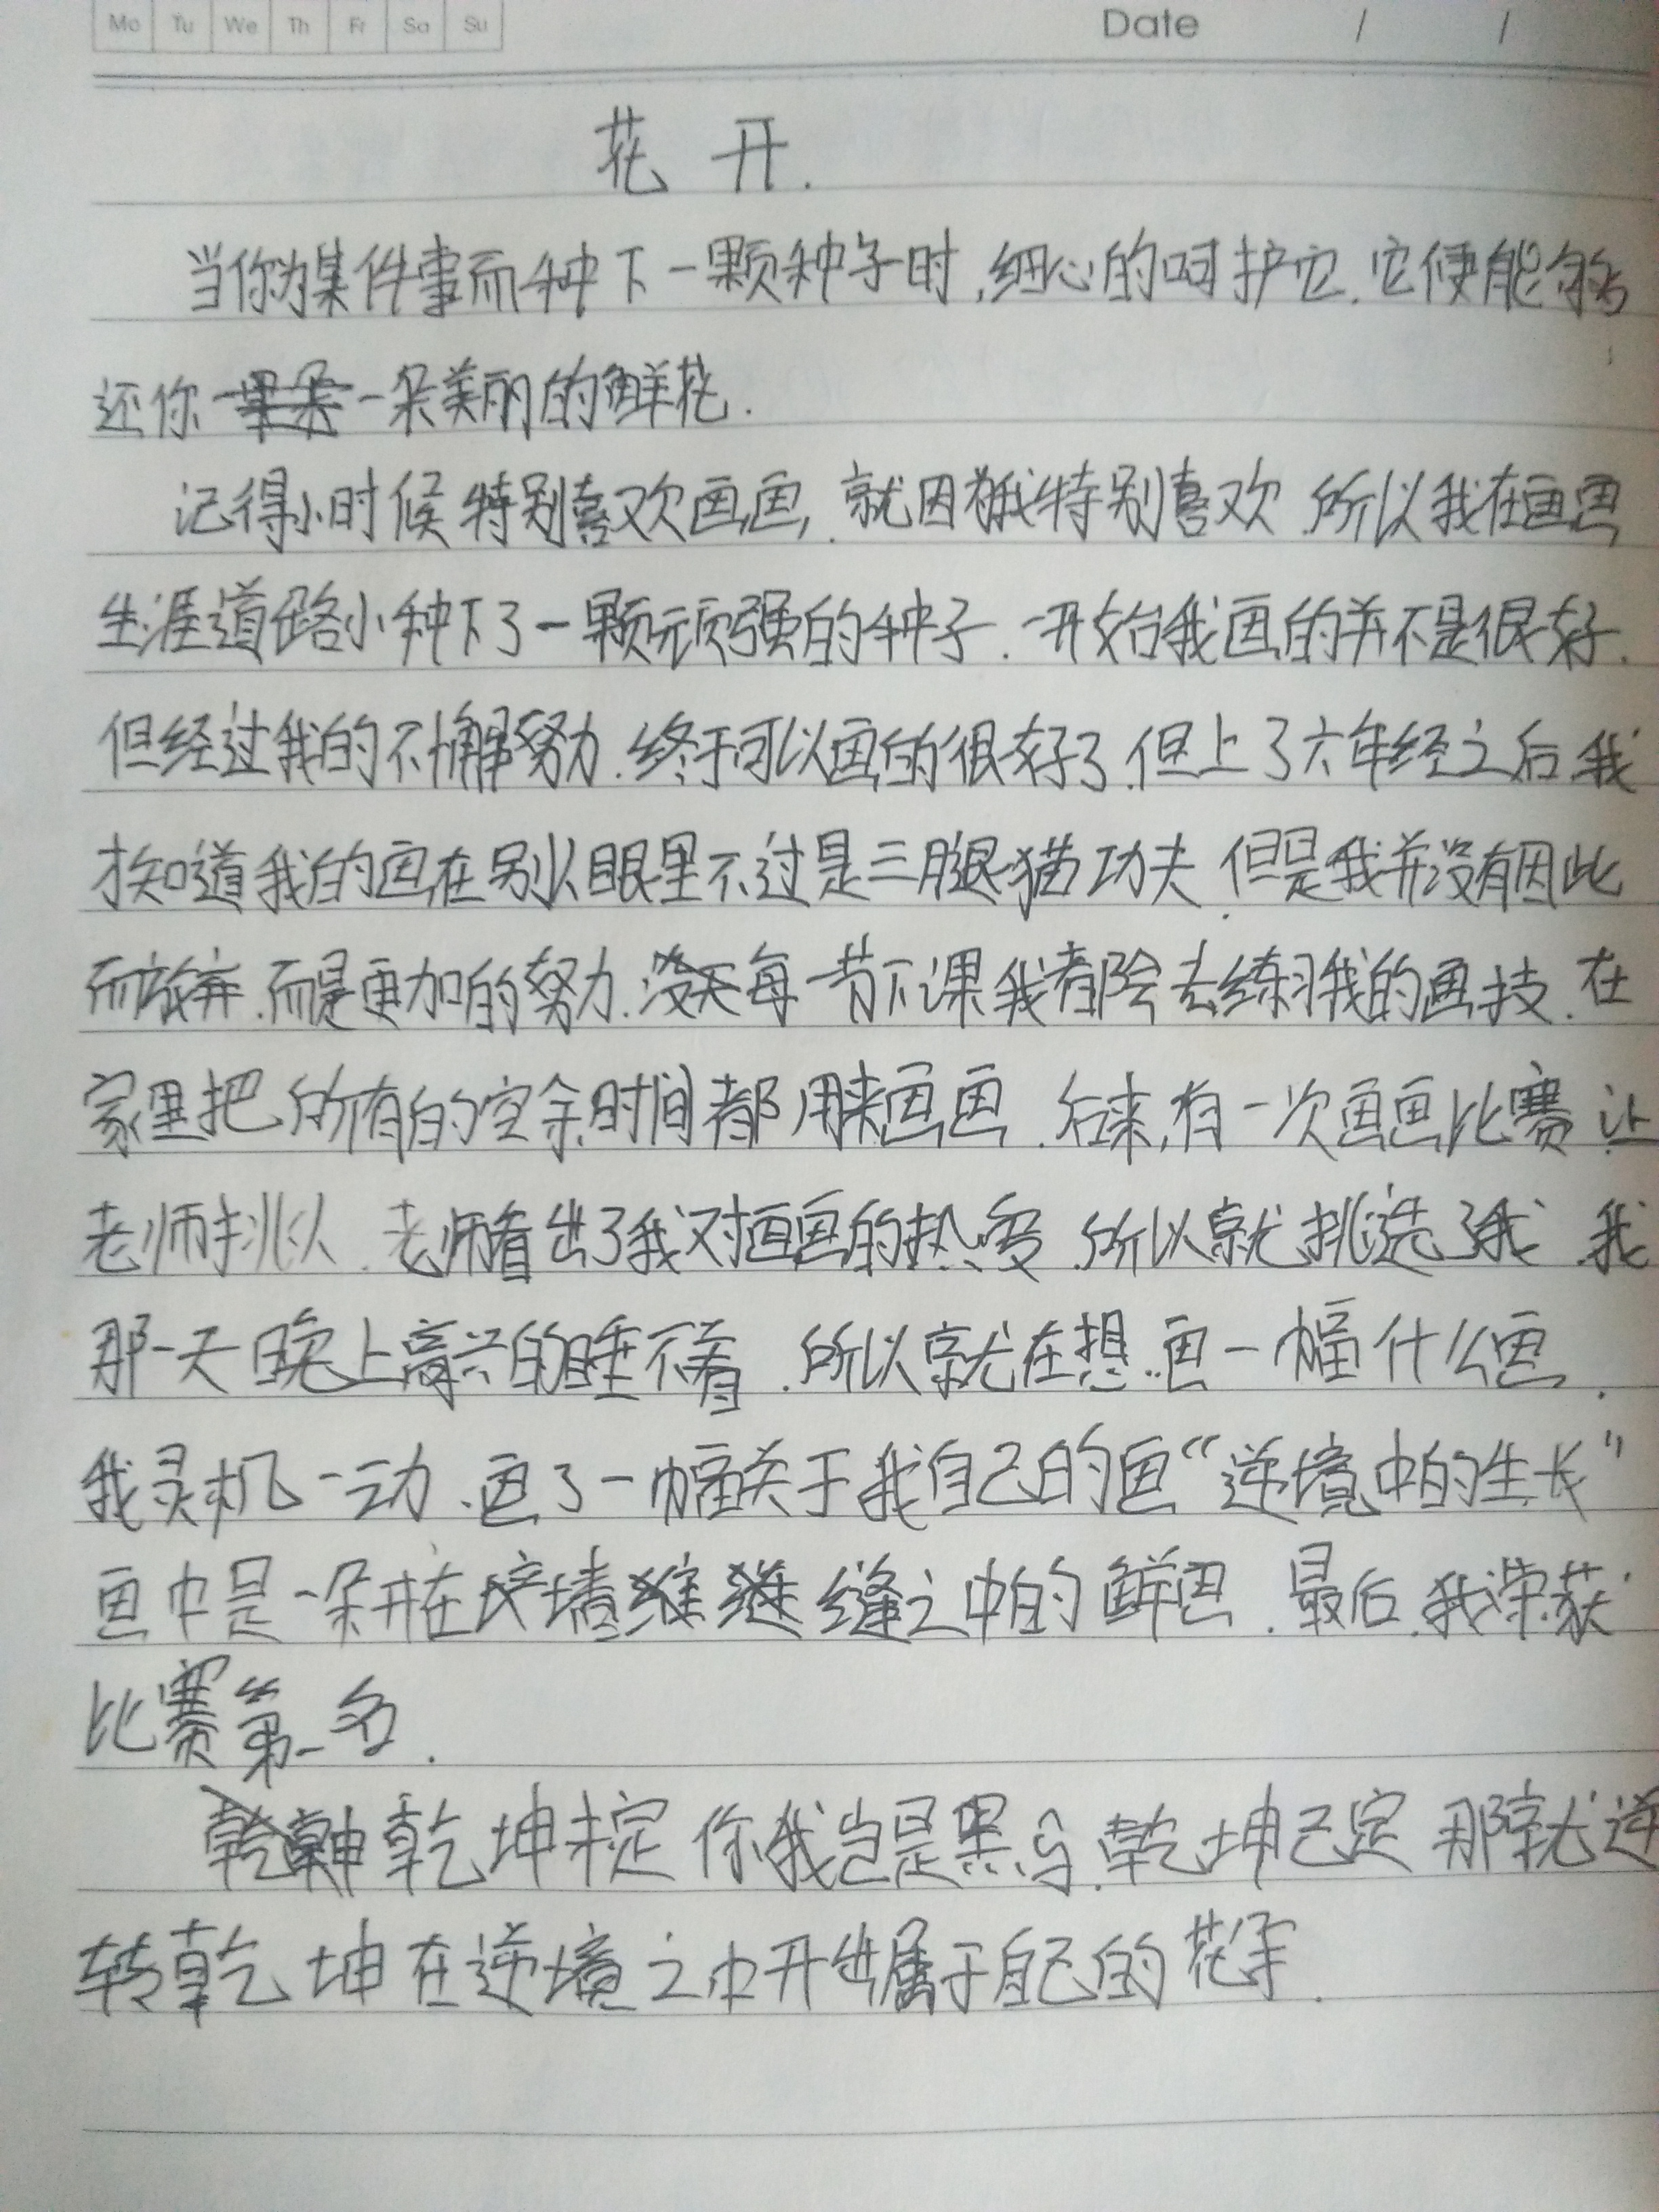 Mo Tu We Th Fr Sa Su Date / /
花开.
当你为某件事而种下一颗种子时,细心的呵护它.它便能够
还你一朵美丽的鲜花.
记得小时候特别喜欢画画,就因为我特别喜欢.所以我在画画
生涯道路小种下了一颗顽强的种子.一开始我画的并不是很好.
但经过我的不懈努力.终于可以画的很好了.但上了六年经之后.我
才知道我的画在别人眼里不过是三腿猫功夫.但是我并没有因此
而放弃.而是更加的努力.每一节下课我都会去练习我的画技.在
家里把所有的空余时间都用来画画.后来,有一次画画比赛.让
老师挑人.老师看出了我对画画的热爱.所以就挑选了我.我
那一天晚上高兴的睡不着.所以就在想.画一幅什么画.
我灵机一动.画了一幅关于我自己的画“逆境中的生长”
画中是一朵开在墙缝之中的鲜画.最后.我荣获
比赛第一名.
乾坤未定你我岂是黑马.乾坤己定那就逆
转乾坤在逆境之中开出属于自己的花朵.